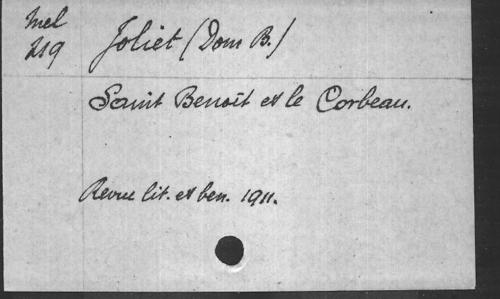 Mel
219
Joliet (Dom B.)
Saint Benoît et le Corbeau.
Revue lit. et ben. 1911.